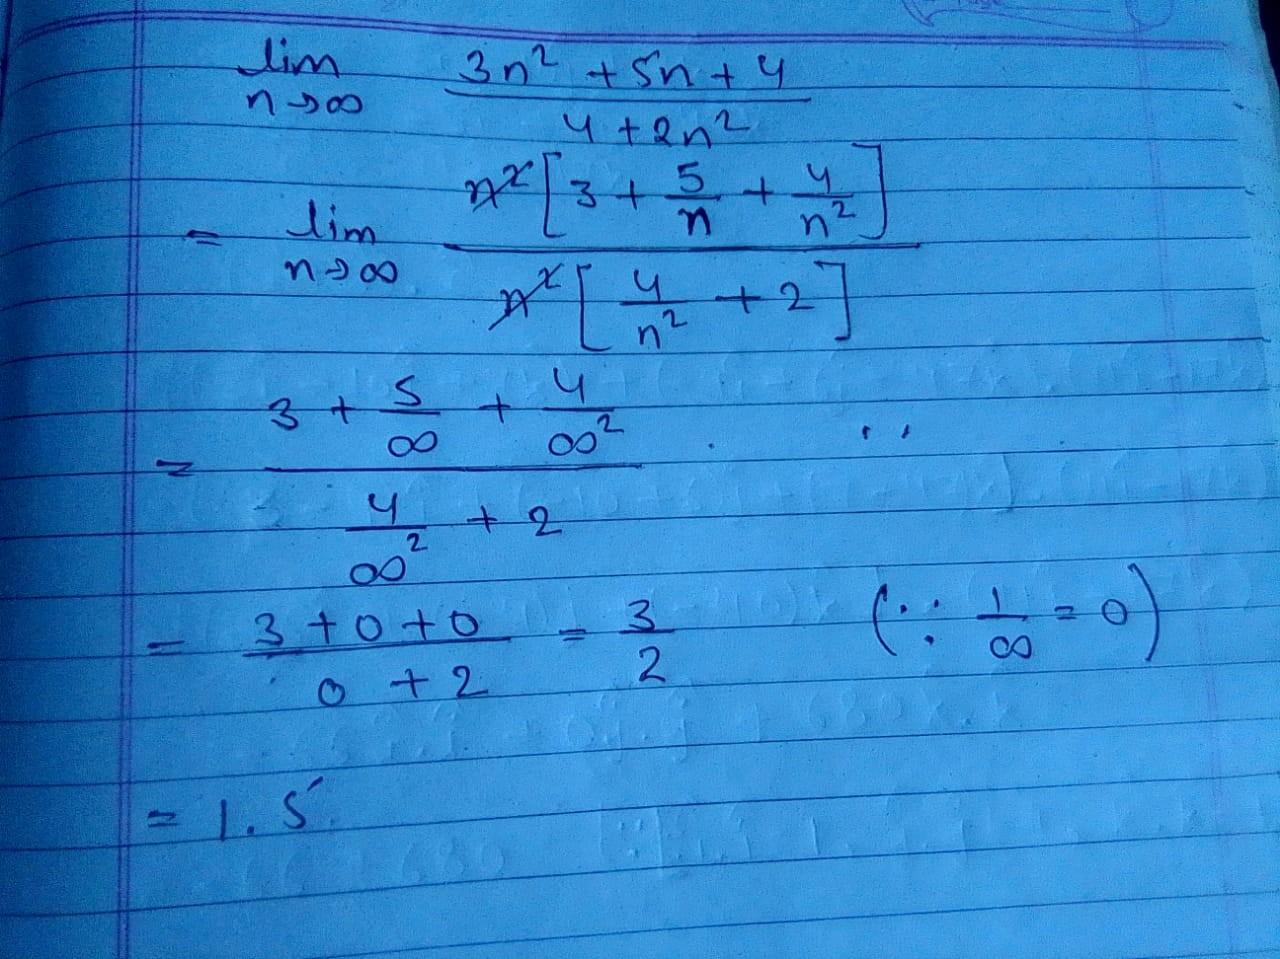 lim 3n² + 5n + 4
n→∞ 4 + 2n²
n²[3 + 5/n + 4/n²]
= lim
n→∞ n²[4/n² + 2]
3 + 5/∞ + 4/∞²
=
4/∞² + 2
= 3 + 0 + 0 / 0 + 2 = 3/2 (∵ 1/∞ = 0)
= 1.5